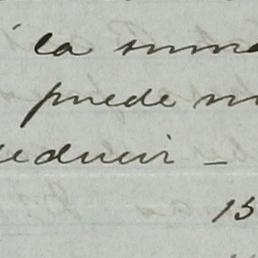 la suma
puede
reducir –
15